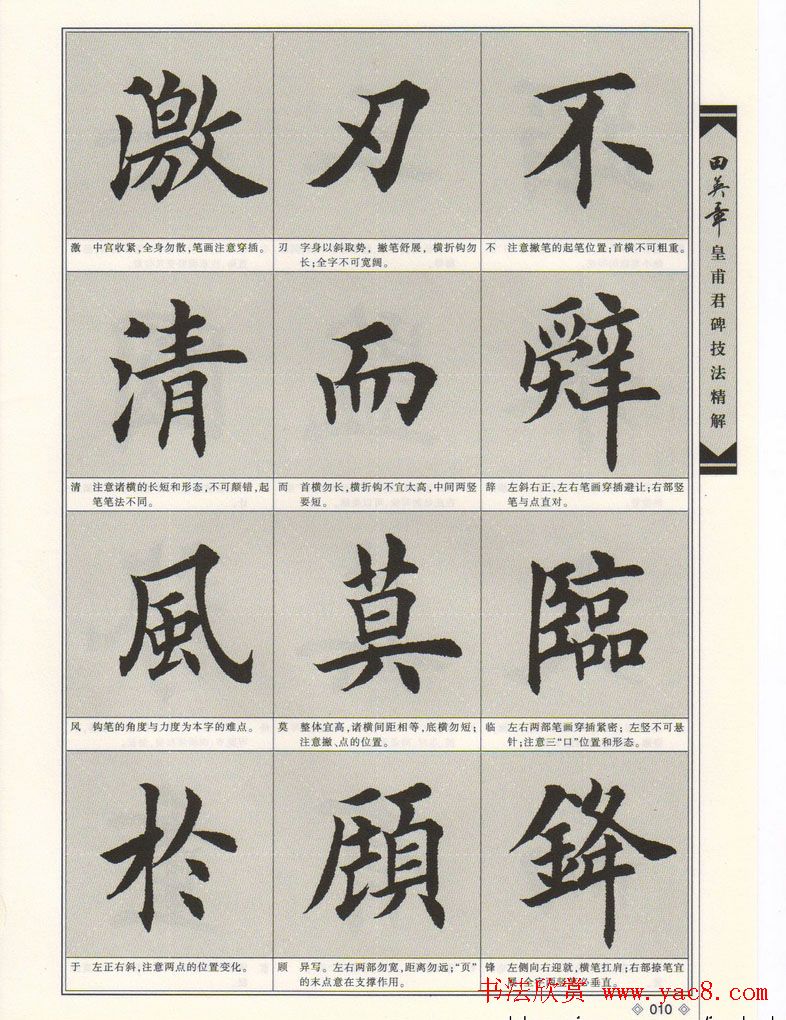 田英章
皇甫君碑技法精解
不
不 注意撇笔的起笔位置;首横不可粗重。
辤
辞 左斜右正,左右笔画穿插避让;右部竖
笔与点直对。
臨
临 左右两部笔画穿插紧密;左竖不可悬
针;注意三“口”位置和形态。
鋒
锋 左侧向右迎就,横笔扛肩;右部捺笔宜
全字两竖 必垂直。
刃
刃 字身以斜取势,撇笔舒展,横折钩勿
长;全字不可宽阔。
而
而 首横勿长,横折钩不宜太高,中间两竖
要短。
莫
莫 整体宜高,诸横间距相等,底横勿短;
注意撇、点的位置。
顧
顾 异写。左右两部勿宽,距离勿远;“页”
的末点意在支撑作用。
激
激 中宫收紧,全身勿散,笔画注意穿插。
清
清 注意诸横的长短和形态,不可颠错,起
笔笔法不同。
風
风 钩笔的角度与力度为本字的难点。
於
于 左正右斜,注意两点的位置变化。
书法欣赏 www.yac8.com
010